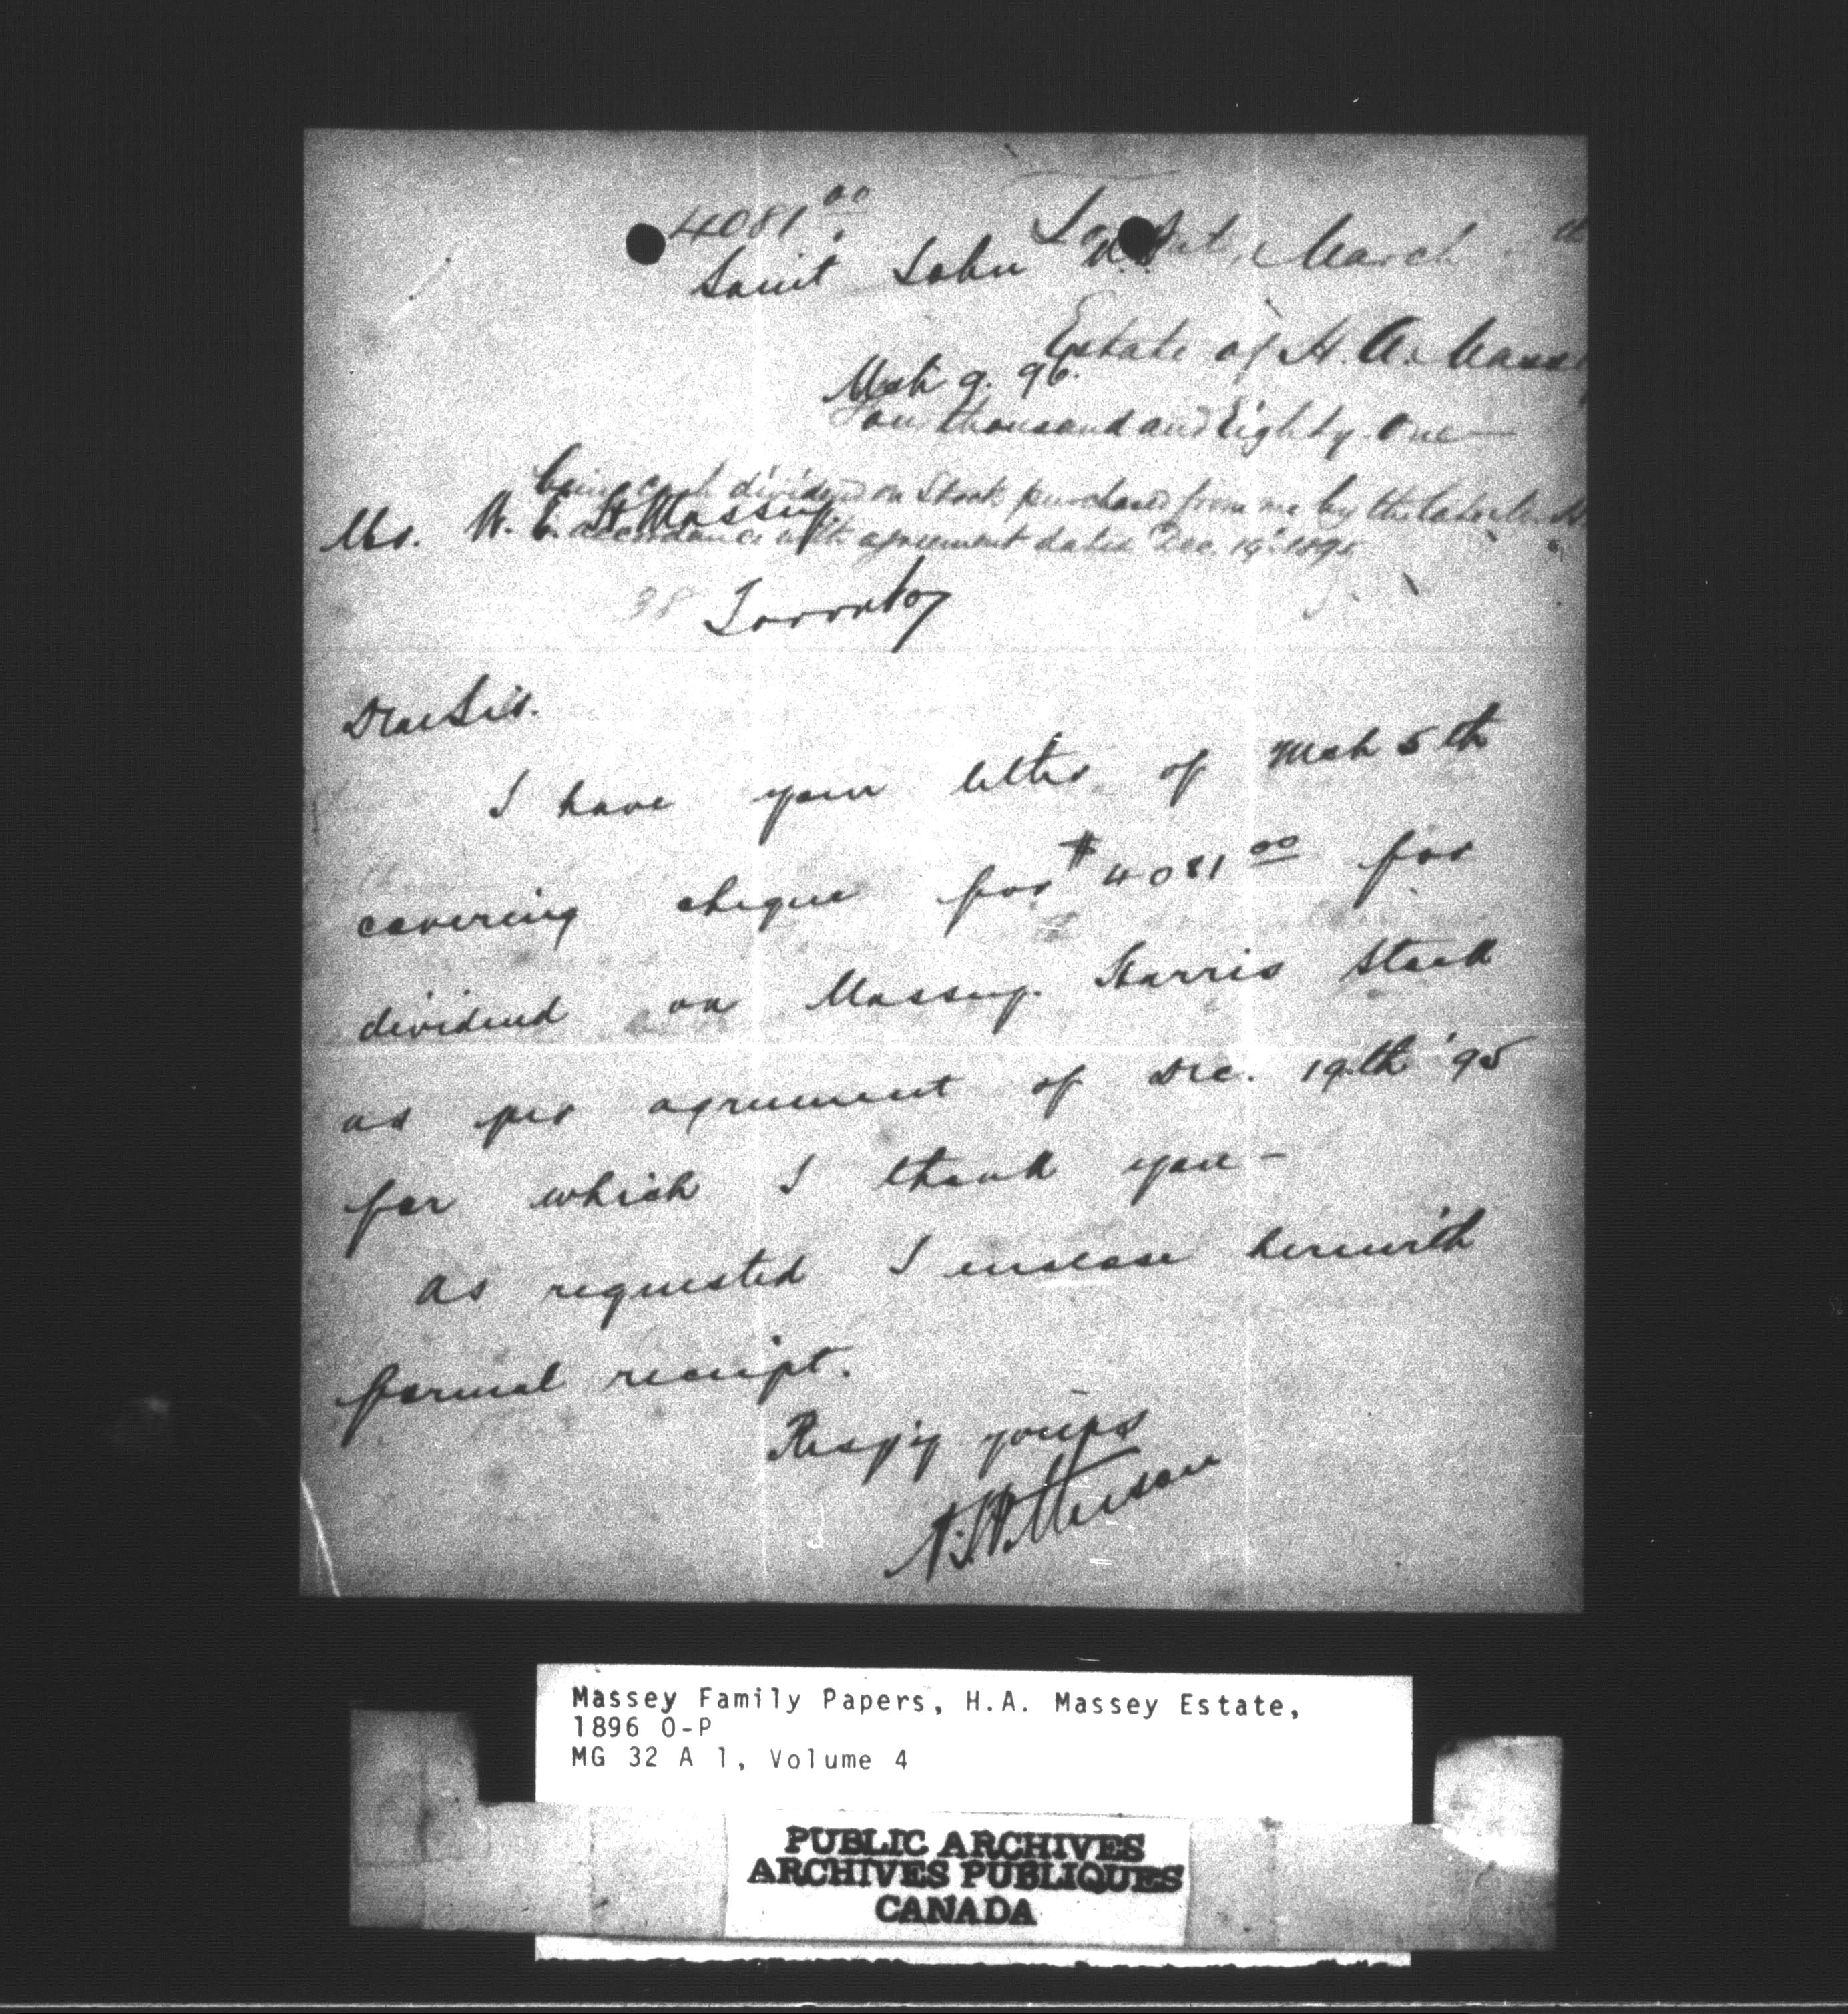 4081 00
March
Saint John N.B.
Estate of H. A. Massey
Mch 9. 96.
Four thousand and Eighty One
being cash dividend on Stock purchased from me by the late
Mr. W. E. H. Massey
accordance with agreement dated Dec. 19th 1895
38
Toronto
Dear Sir.
I have your letter of Mch 5th
covering cheque for $4081 00 for
dividend on Massey-Harris Stock
as per agreement of Dec. 19th '95
for which I thank you -
As requested I enclose herewith
formal receipt.
Resp'y yours
Massey Family Papers, H.A. Massey Estate,
1896 O-P
MG 32 A 1, Volume 4
PUBLIC ARCHIVES
ARCHIVES PUBLIQUES
CANADA